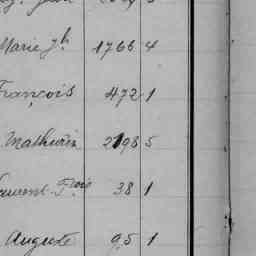 Marie Jh 1766 4
François 472 1
Mathurin 2198 5
Laurent Fçois 38 1
Auguste 95 1